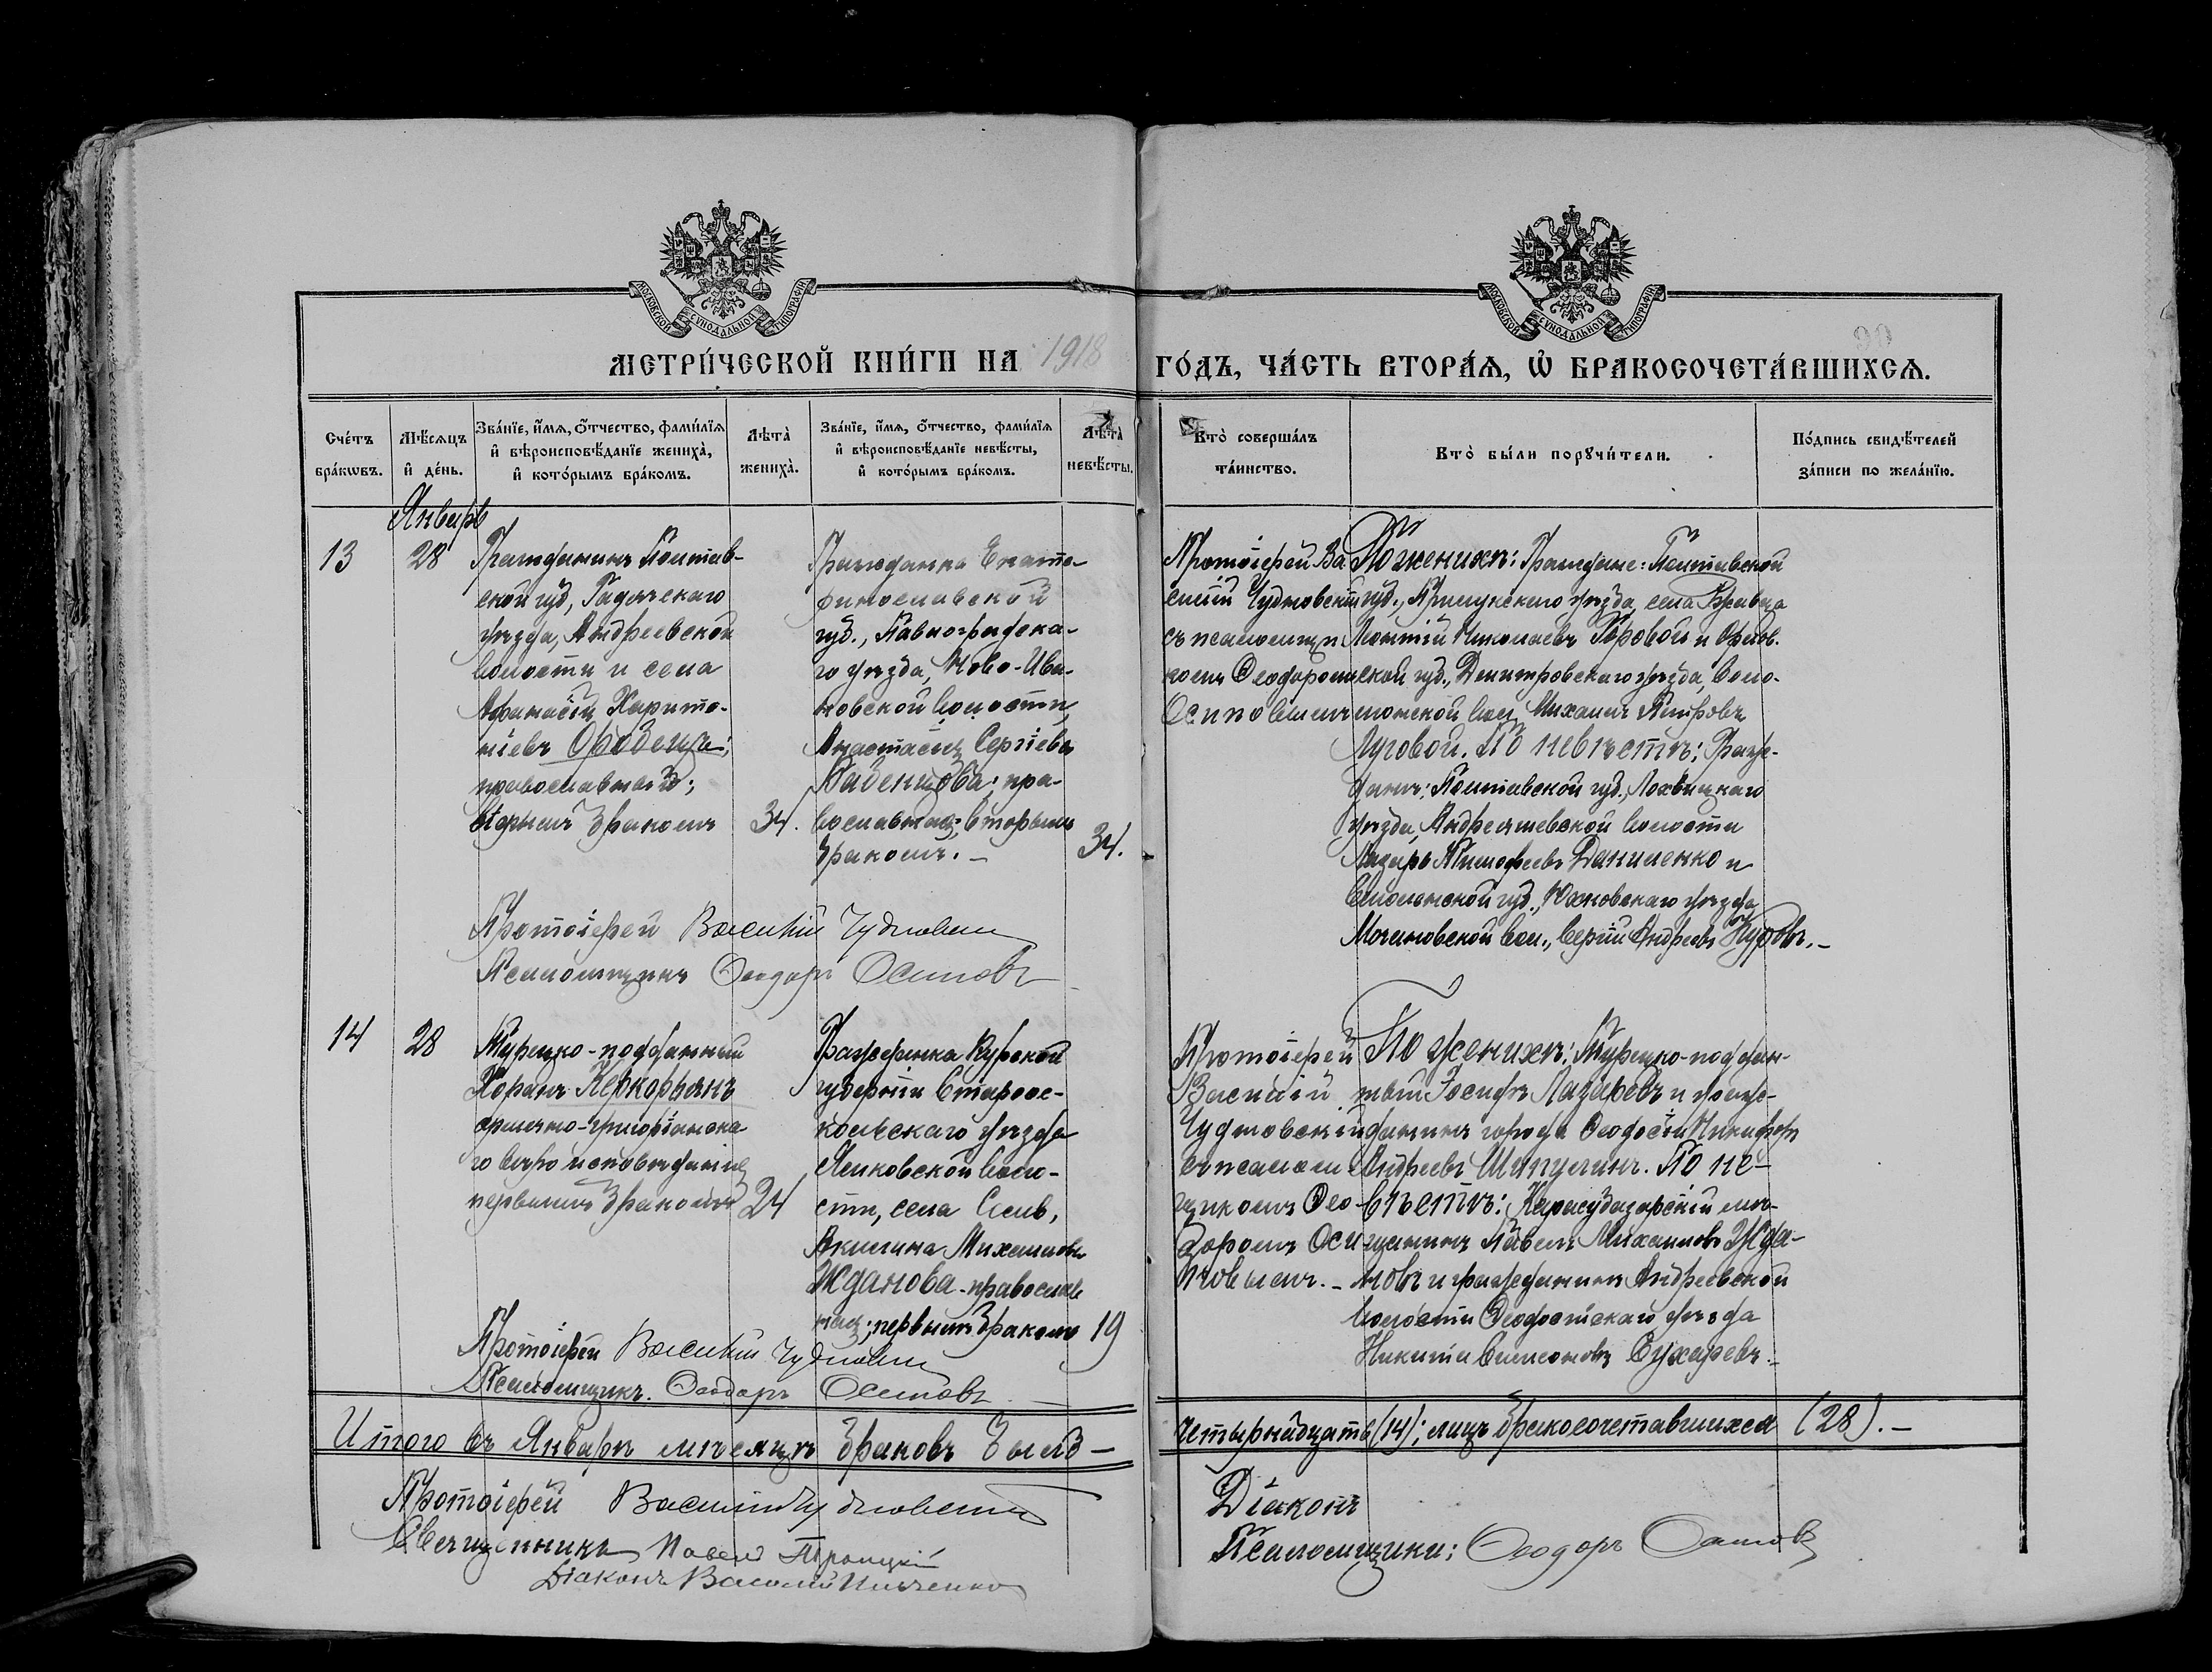 МОСКОВСКОЙ СѴНОДАЛЬНОЙ ТИПОГРАФІИ
МОСКОВСКОЙ СѴНОДАЛЬНОЙ ТИПОГРАФІИ
МЕТРИ́ЧЕСКОЙ КНИ́ГИ НА 1918
ГО́ДЪ, ЧА́СТЬ ВТОРА́Ѧ, Ѽ БРАКОСОЧЕТА́ВШИХСѦ.
Сче́тъ бра́кѡвъ.
Мѣ́сѧцъ и҆ де́нь.
Зва́нїе, и҆́мѧ, ѻ҆́тчество, фами́лїѧ и҆ вѣроисповѣ́данїе жениха̀, и҆ кото́рымъ бра́комъ.
Лѣта̀ жениха̀.
Зва́нїе, и҆́мѧ, ѻ҆́тчество, фами́лїѧ и҆ вѣроисповѣ́данїе невѣ́сты, и҆ кото́рымъ бра́комъ.
Лѣта̀ невѣ́сты.
Кто̀ соверша́лъ та́инство.
Кто̀ бы́ли порꙋчи́тели.
По́дпись свидѣ́телей за́писи по жела́нїю.
Январь
13
28
Гражданинъ Полтав-
ской губ., Гадячскаго
уѣзда, Андреевской
волости и села
Афанасій Харито-
ніевъ
православный;
вторымъ бракомъ
34.
Гражданка Екате-
ринославской
губ., Павлоградска-
го уѣзда, Ново-Ива-
новской волости,
Анастасія Сергіева
пра-
вославная; вторымъ
бракомъ. –
34.
Протоіерей Ва-
силій Чудновскій
съ псаломщи-
комъ Ѳеодоромъ
Осиповымъ
По женихѣ: Граждане: Полтавской
губ., Прилукскаго уѣзда, села
Леонтій Николаевъ и Орлов-
ской губ., Дмитровскаго уѣзда,
вол. Михаилъ Петровъ
Луговой. По невѣстѣ: Граж-
дане: Полтавской губ., Лохвицкаго
уѣзда, Андреяшевской волости
Лазарь Тимофеевъ Даниленко и
Смоленской губ., Юхновскаго уѣзда
вол., Сергій Андреевъ
Протоіерей Василій Чудновскій
Псаломщикъ Ѳеодоръ Осиповъ
14
28
Турецко-подданный
Хоранъ Керкорьянъ
армяно-григоріанска-
го вѣроисповѣданія
первымъ бракомъ
24
Гражданка Курской
губерніи Староос-
кольскаго уѣзда
волo-
сти, села
Акилина Михаилова
Жданова – православ-
ная; первымъ бракомъ
19
Протоіерей
Василій
Чудновскій
съ псалом-
щикомъ Ѳео-
доромъ Оси-
повымъ. –
По женихѣ: Турецко-поддан-
ный Іосифъ Лазаревъ и граж-
данинъ города Ѳеодосіи Никифоръ
Андреевъ Шипулинъ. По не-
вѣстѣ: Карасубазарскій мѣ-
щанинъ Павелъ Михаиловъ Жда-
новъ и гражданинъ Андреевской
волости Ѳеодосійскаго уѣзда
Никита Симеоновъ Сухаревъ. –
Протоіерей Василій Чудновскій
Псаломщикъ. Ѳеодоръ Осиповъ
Итого въ Январѣ мѣсяцѣ браковъ было –
четырнадцать (14); лицъ бракосочетавшихся (28). –
Протоіерей Василій Чудновскій
Священникъ Павелъ Троицкій
Діаконъ Василій
Діаконъ
Псаломщики: Ѳеодоръ Осиповъ